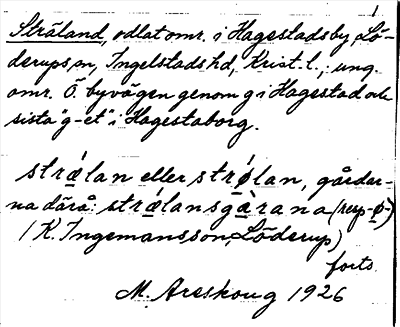 1
Sträland, odlat omr. i Hagestads by, Lö-
derups sn, Ingelstads hd, Krist. l.; ung.
omr. Ö. byvägen genom g i Hagestad och
sista "g-et" i Hagestaborg.
strǽlan eller strǿlan, gårdar-
na därå: strǽlansgærana (resp -ø-)
(K. Ingemansson, Löderup)
forts.
M. Areskoug 1926